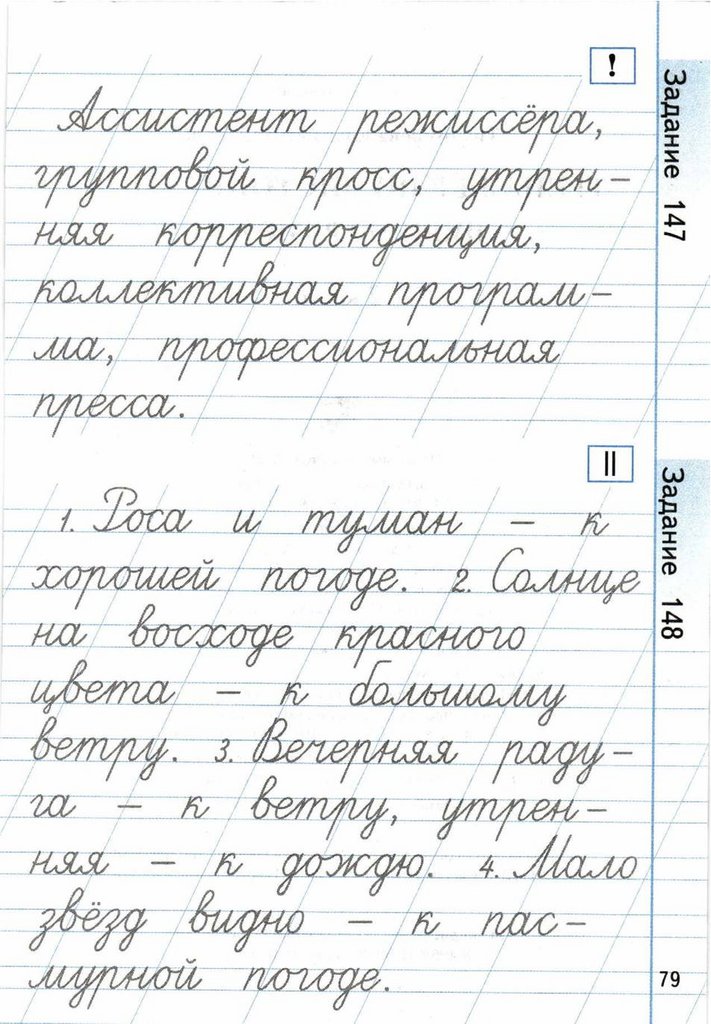 !
Задание 147
Ассистент режиссёра,
групповой кросс, утрен-
няя корреспонденция,
коллективная програм-
ма, профессиональная
пресса.
II
Задание 148
1. Роса и туман – к
хорошей погоде. 2. Солнце
на восходе красного
цвета – к большому
ветру. 3. Вечерняя раду-
га – к ветру, утрен-
няя – к дождю. 4. Мало
звёзд видно – к пас-
мурной погоде.
79